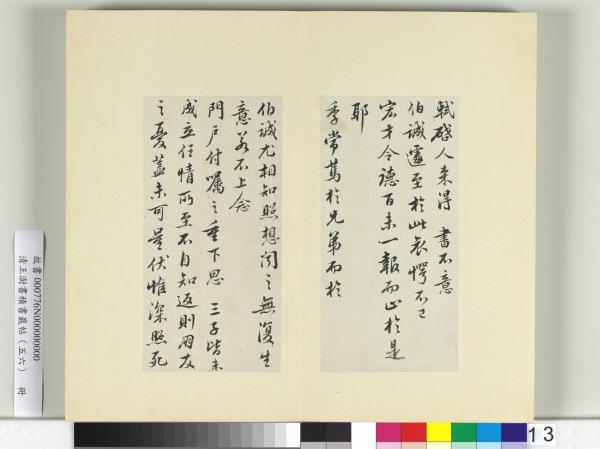 軾啓人來得 書不意
伯誠遽至於此哀愕不已
宏才令德百未一報而止於是
耶
季常篤於兄弟而於
伯誠尤相知照想聞之無復生
意若不上念
門戶付囑之重下思 三子皆未
成立任情所至不自知返則朋友
之憂蓋未可量伏惟深照死
故書000776N000000000
清王澍書積書巖帖(五六) 冊
13